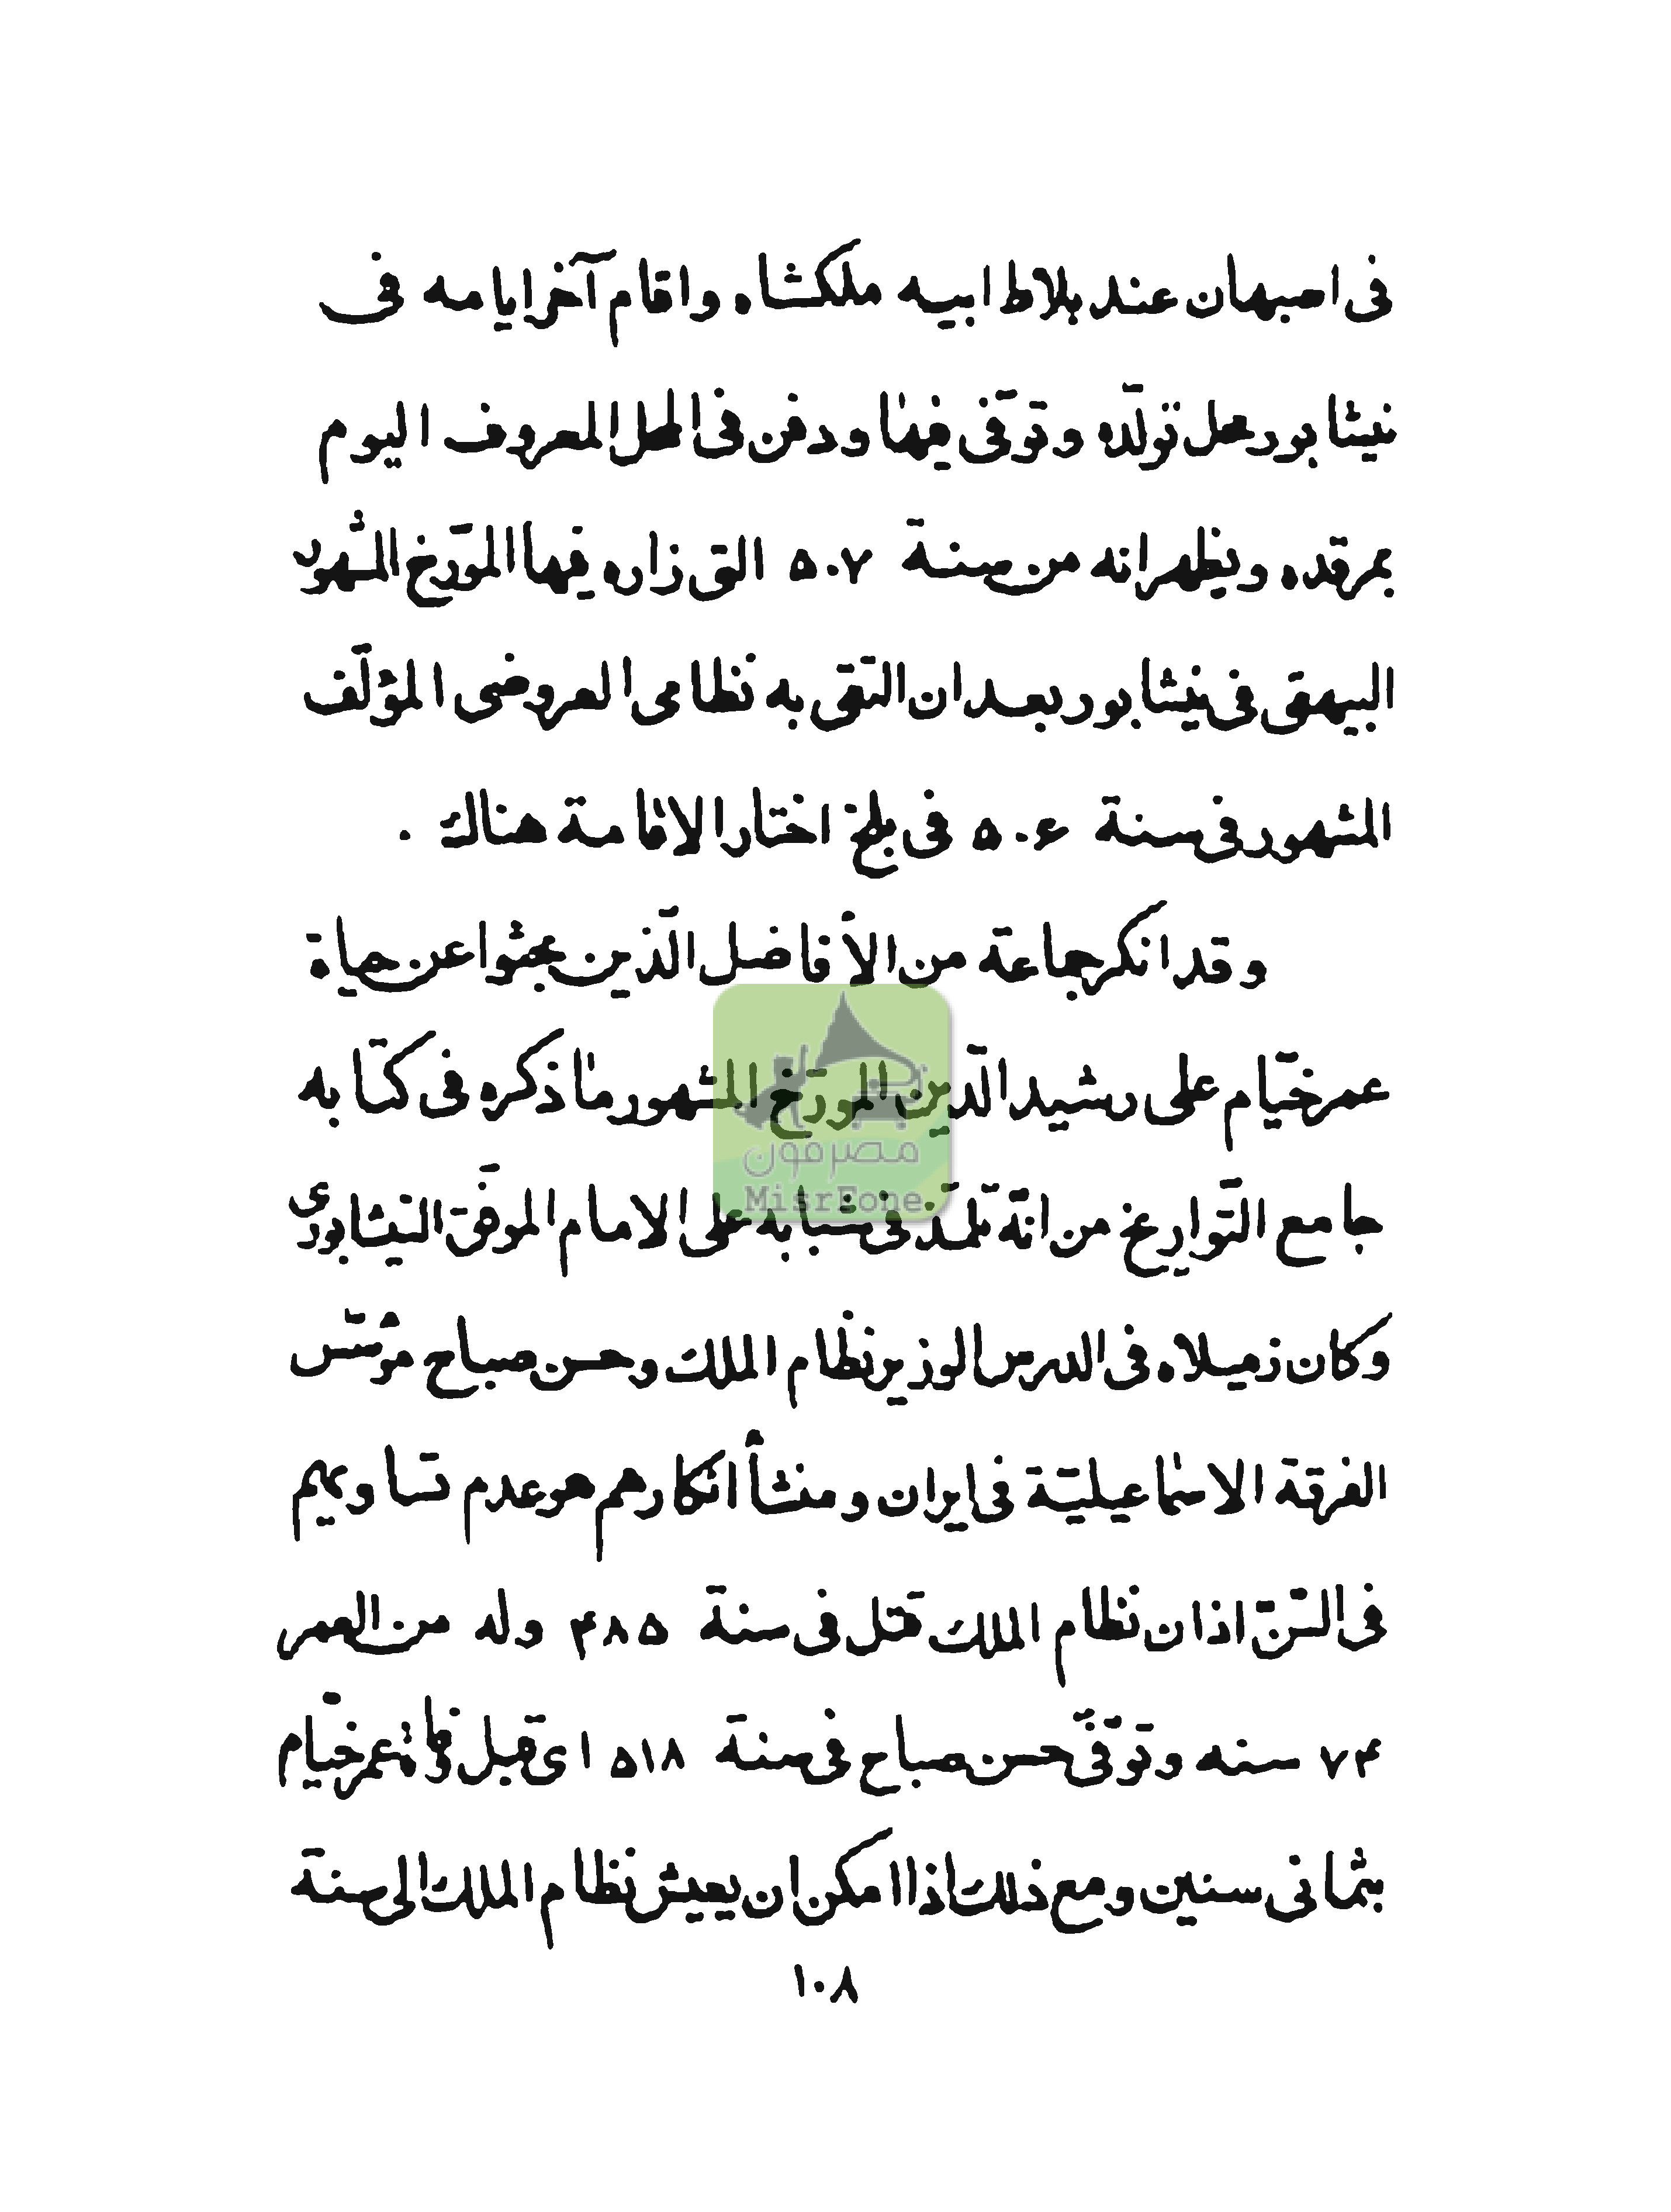 فى اصبهان عند بلاط ابيه ملكشاه واقام آخر ايامه فى
نيشابور محل تولّده وتوفّى فيها ودفن فى المحل المعروف اليوم
بمرقده ويظهر انه من سنة ٥٠٧ التى زاره فيها المورّخ المشهور
البيهقى فى نيشابور بعد ان التقى به نظامى العروضى المؤلّف
المشهور فى سنة ٥٠۶ فى بلخ اختار الاقامة هناك .
وقد انكر جماعة من الأفاضل الّذين بحثوا عن حياة
عمر خيّام على رشيد الّدين المورّخ المشهور ما ذكره فى كتابه
جامع التّواريخ من انّه تلمّذ فى شبابه على الامام الموفّق النيشابورى
وكان زميلاه فى الدرس الوزير نظام الملك وحسن صباح مؤسّس
الفرقة الاسماعيليّة فى ايران ومنشأ انكارهم هو عدم تساويهم
فى السّنّ اذ ان نظام الملك قتل فى سنة ۴٨٥ وله من العمر
٧۴ سنه وتوفّى حسن صباح فى سنة ٥١٨ اى قبل وفاة عمر خيّام
بثمانى سنين ومع ذلك اذا امكن ان يعيش نظام الملك الى سنة
١٠٨
مصرفون
MisrFone